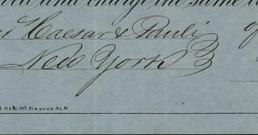 and charge the same to
Caesar & Pauli
New York
BEAVER ST. N.Y.